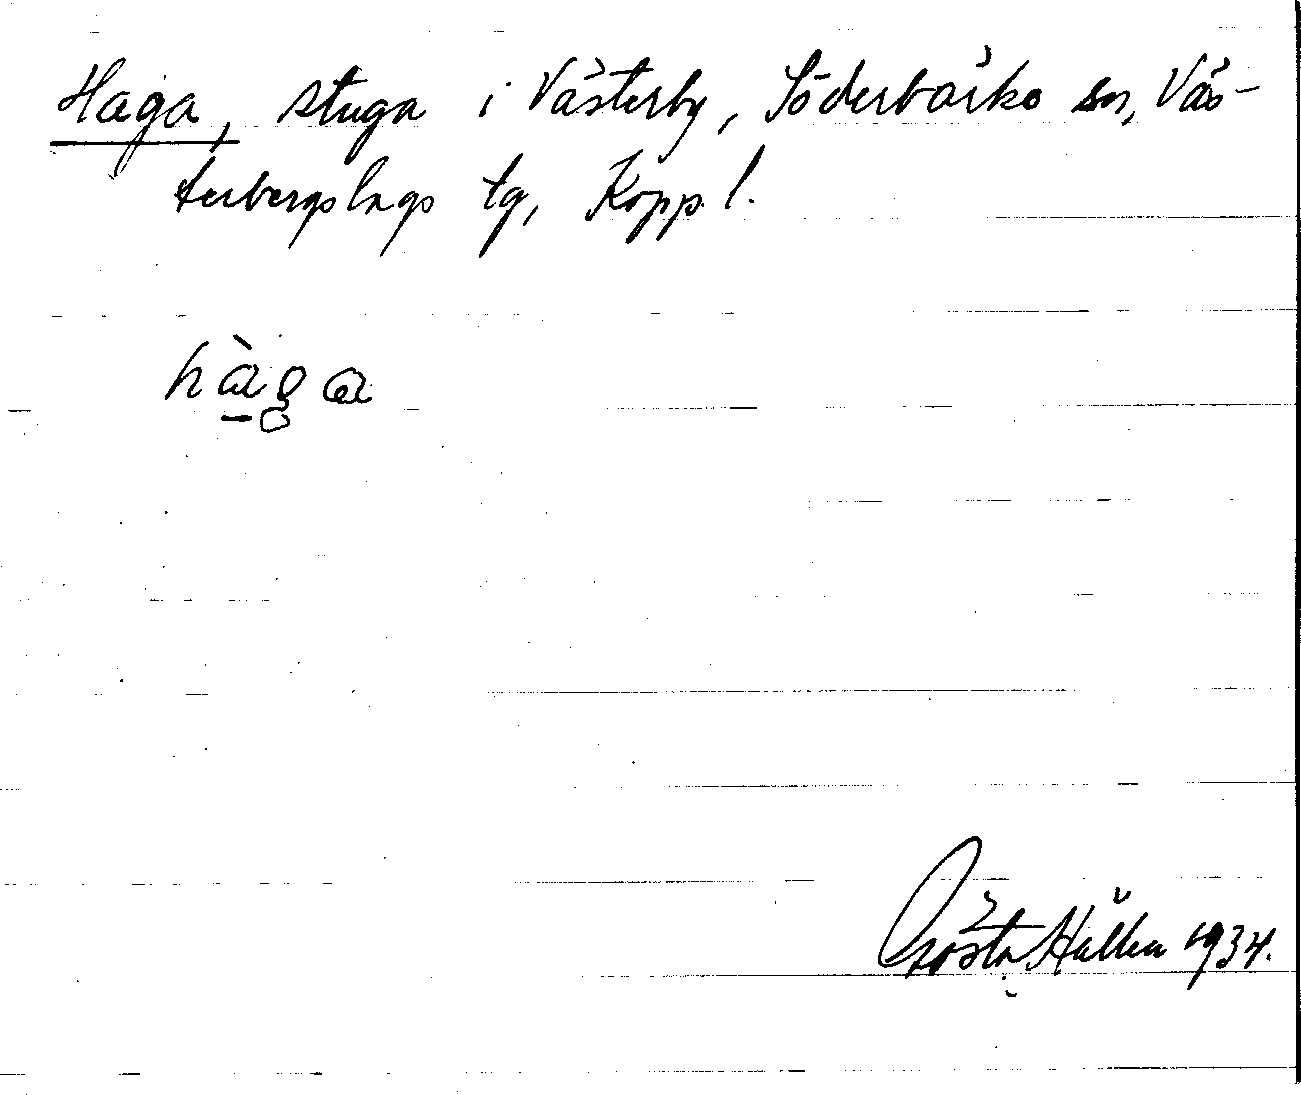 Haga, stuga i Västerby, Söderbärke sn, Väs-
terbergslags tg, Kopp. l.
hàga
Gösta Hällen 1934.